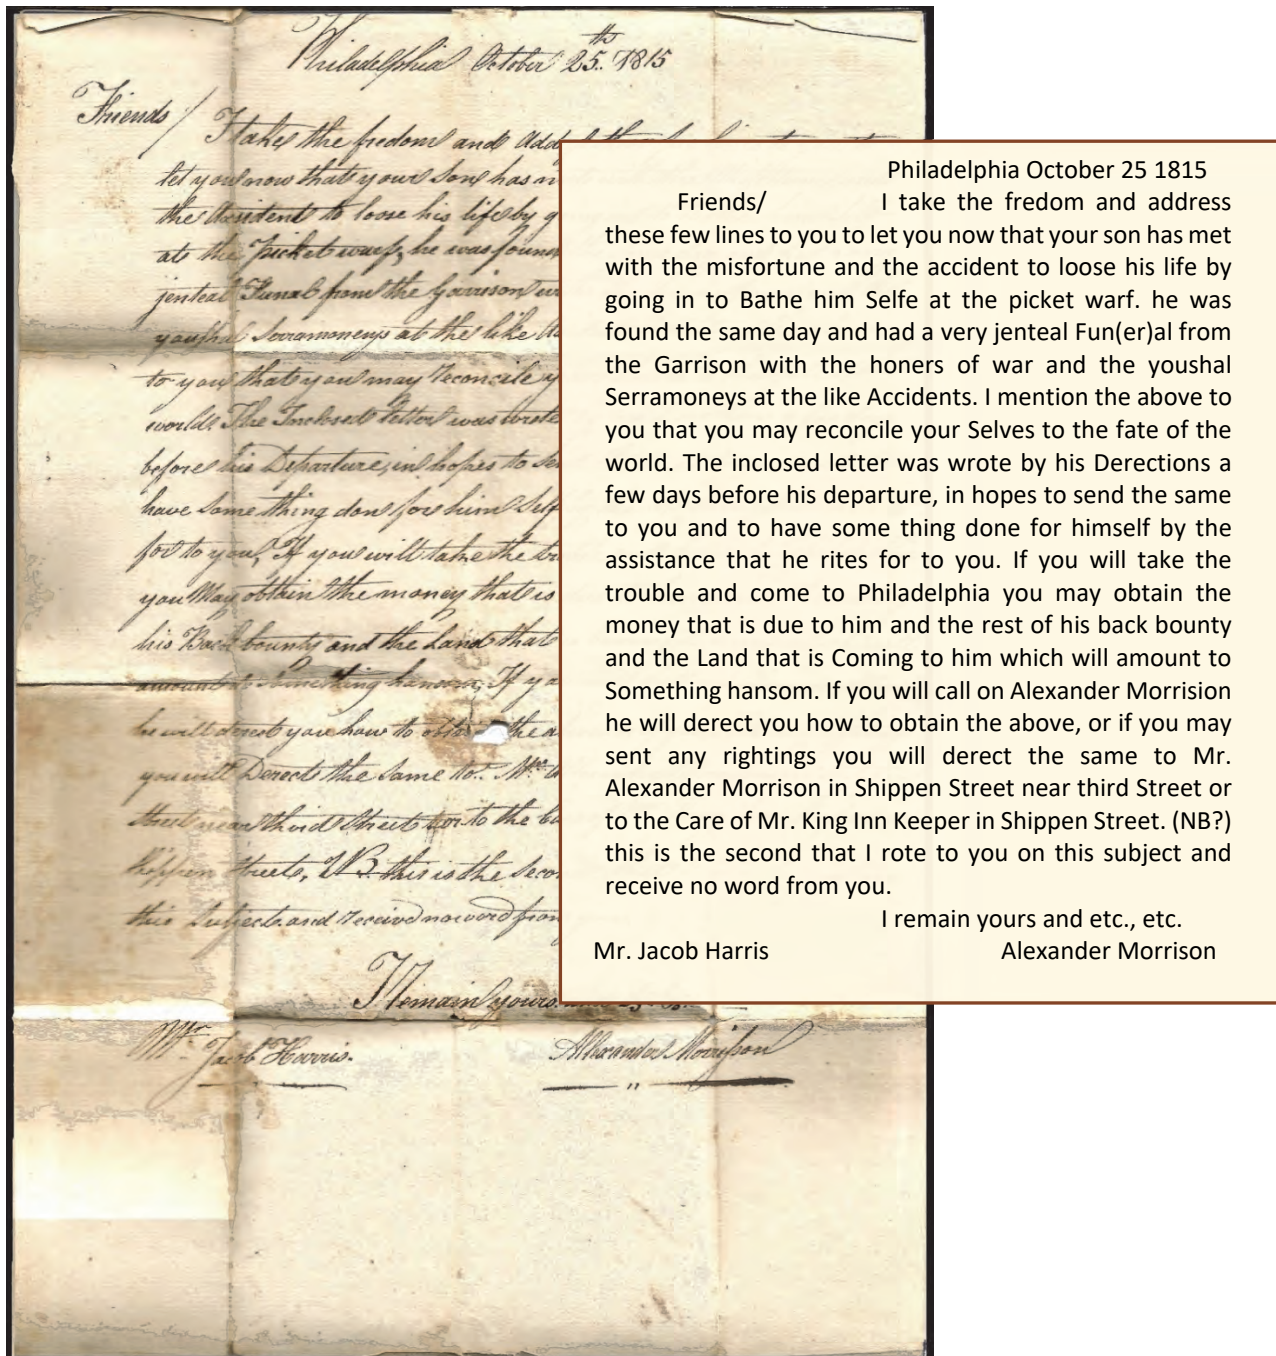 Philadelphia October 25.th 1815
Friends/ I takes the fredom and Add
let you now that your Son has m
the Accident to loose his life by g
at the Picket warf, he was found
jenteal Funal from the Garrison w
youshal Serramoneys at the like A
to you that you may reconcile y
world. The Inclosed letter was wrote
before his Departure, in hopes to se
have some thing don for him Self
for to you, If you will take the tr
you May obtain the money that is
his Back bounty and the Land that
amount to Something hansom, If y
he will derect you how to obtain the a
you will Derect the Same to. Mr.
Street near third Street or to the Ca
Shippen Street, NB. this is the Seco
this Subject and receive no word from
I remain yours
Mr. Jacob Harris.
Alexander Morrisson
Philadelphia October 25 1815
Friends/ I take the fredom and address
these few lines to you to let you now that your son has met
with the misfortune and the accident to loose his life by
going in to Bathe him Selfe at the picket warf. he was
found the same day and had a very jenteal Fun(er)al from
the Garrison with the honers of war and the youshal
Serramoneys at the like Accidents. I mention the above to
you that you may reconcile your Selves to the fate of the
world. The inclosed letter was wrote by his Derections a
few days before his departure, in hopes to send the same
to you and to have some thing done for himself by the
assistance that he rites for to you. If you will take the
trouble and come to Philadelphia you may obtain the
money that is due to him and the rest of his back bounty
and the Land that is Coming to him which will amount to
Something hansom. If you will call on Alexander Morrision
he will derect you how to obtain the above, or if you may
sent any rightings you will derect the same to Mr.
Alexander Morrison in Shippen Street near third Street or
to the Care of Mr. King Inn Keeper in Shippen Street. (NB?)
this is the second that I rote to you on this subject and
receive no word from you.
I remain yours and etc., etc.
Mr. Jacob Harris Alexander Morrison